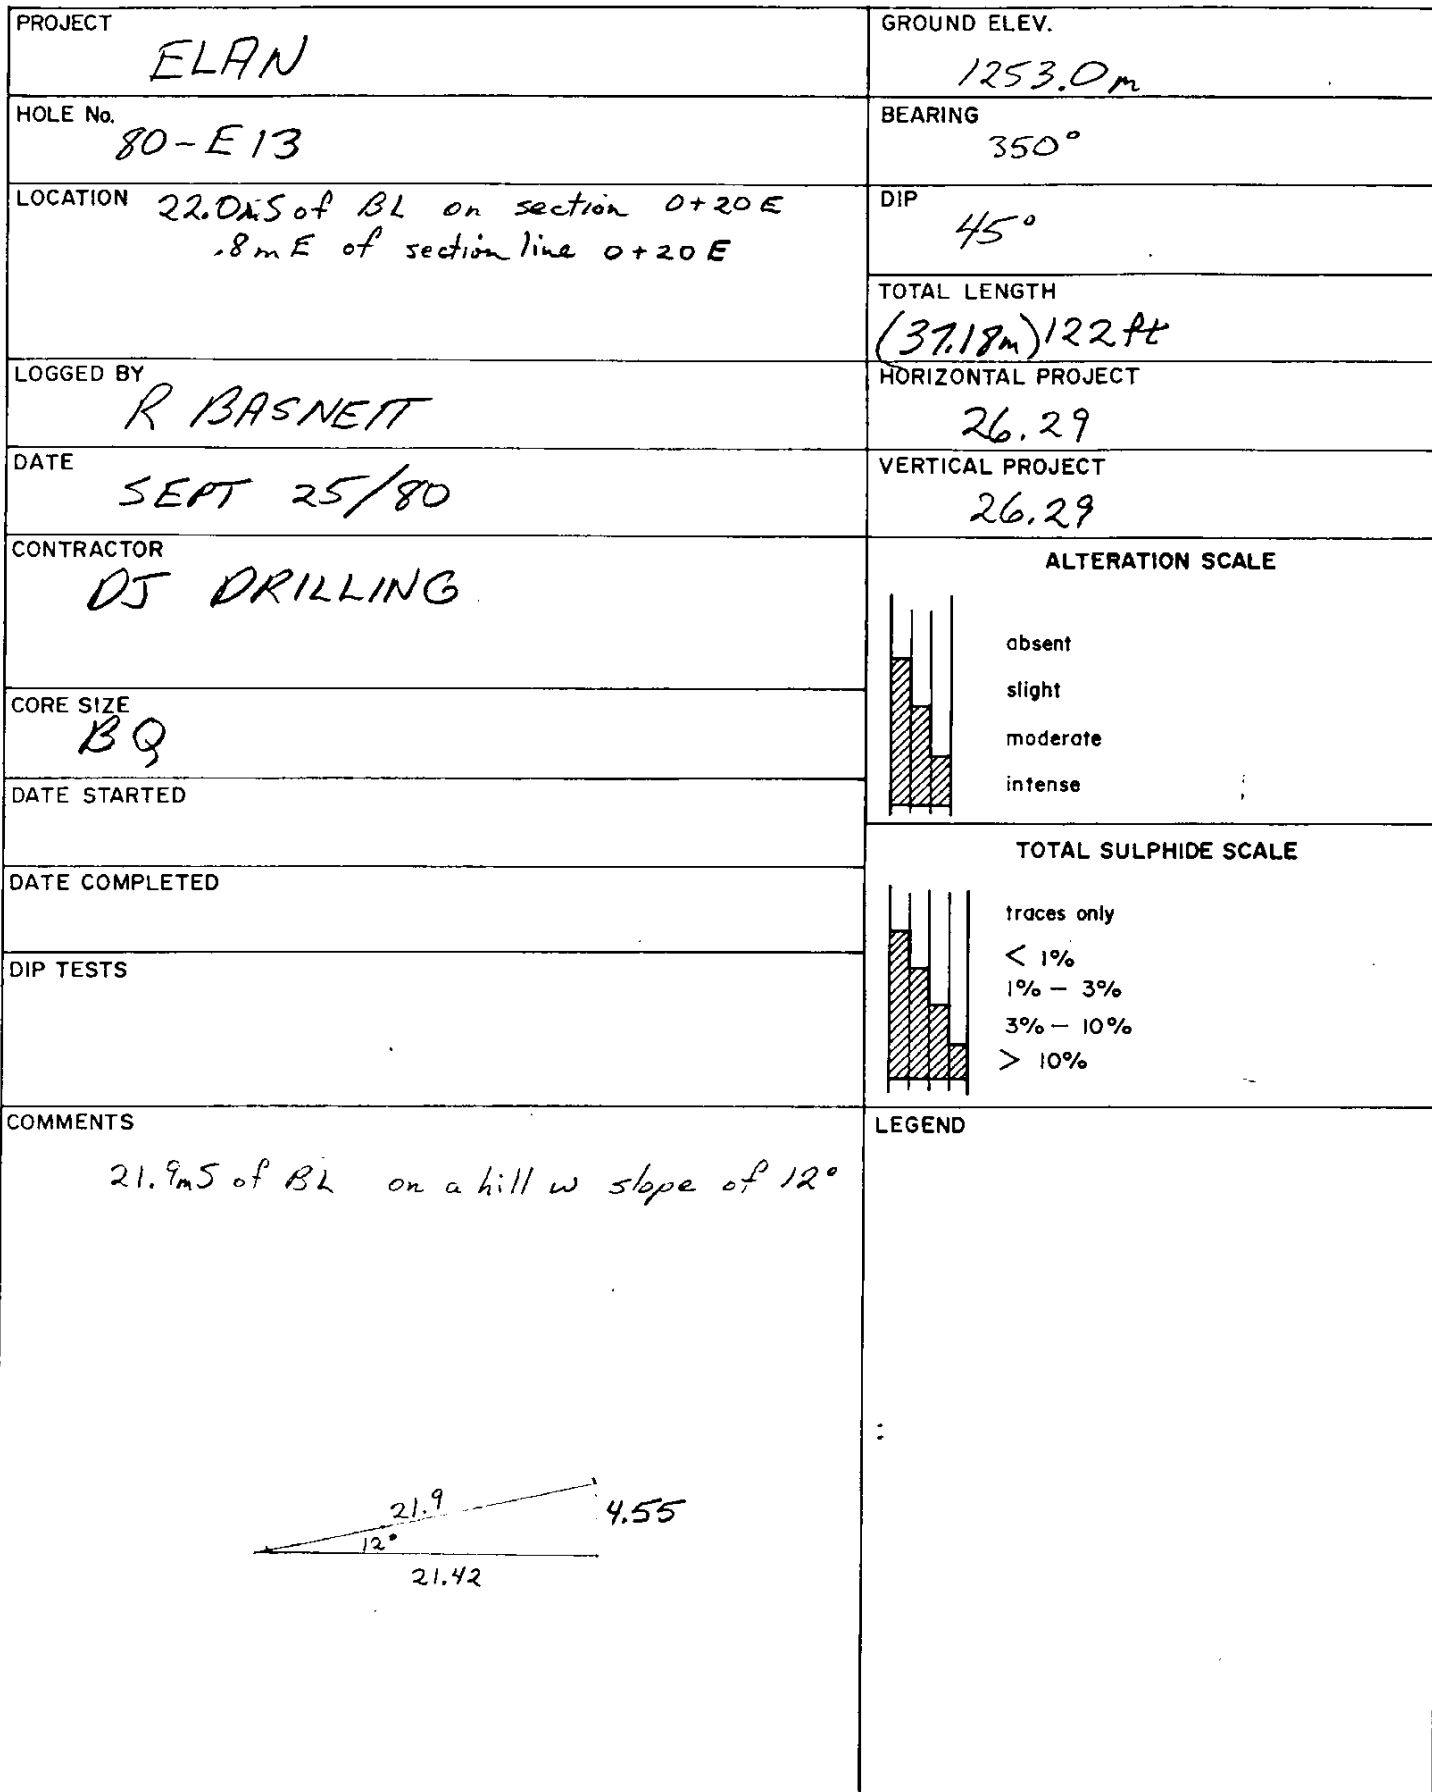 PROJECT
ELAN
HOLE No.
80-E13
LOCATION 22.0mS of BL on section 0+20E
.8mE of section line 0+20E
LOGGED BY
R BASNETT
DATE
SEPT 25/80
CONTRACTOR
DJ DRILLING
CORE SIZE
BQ
DATE STARTED
DATE COMPLETED
DIP TESTS
COMMENTS
21.9mS of BL on a hill w slope of 12°
21.9
4.55
12°
21.42
GROUND ELEV.
1253.0m
BEARING
350°
DIP
45°
TOTAL LENGTH
(37.18m) 122 ft
HORIZONTAL PROJECT
26.29
VERTICAL PROJECT
26.29
ALTERATION SCALE
absent
slight
moderate
intense
TOTAL SULPHIDE SCALE
traces only
< 1%
1% – 3%
3% – 10%
> 10%
LEGEND